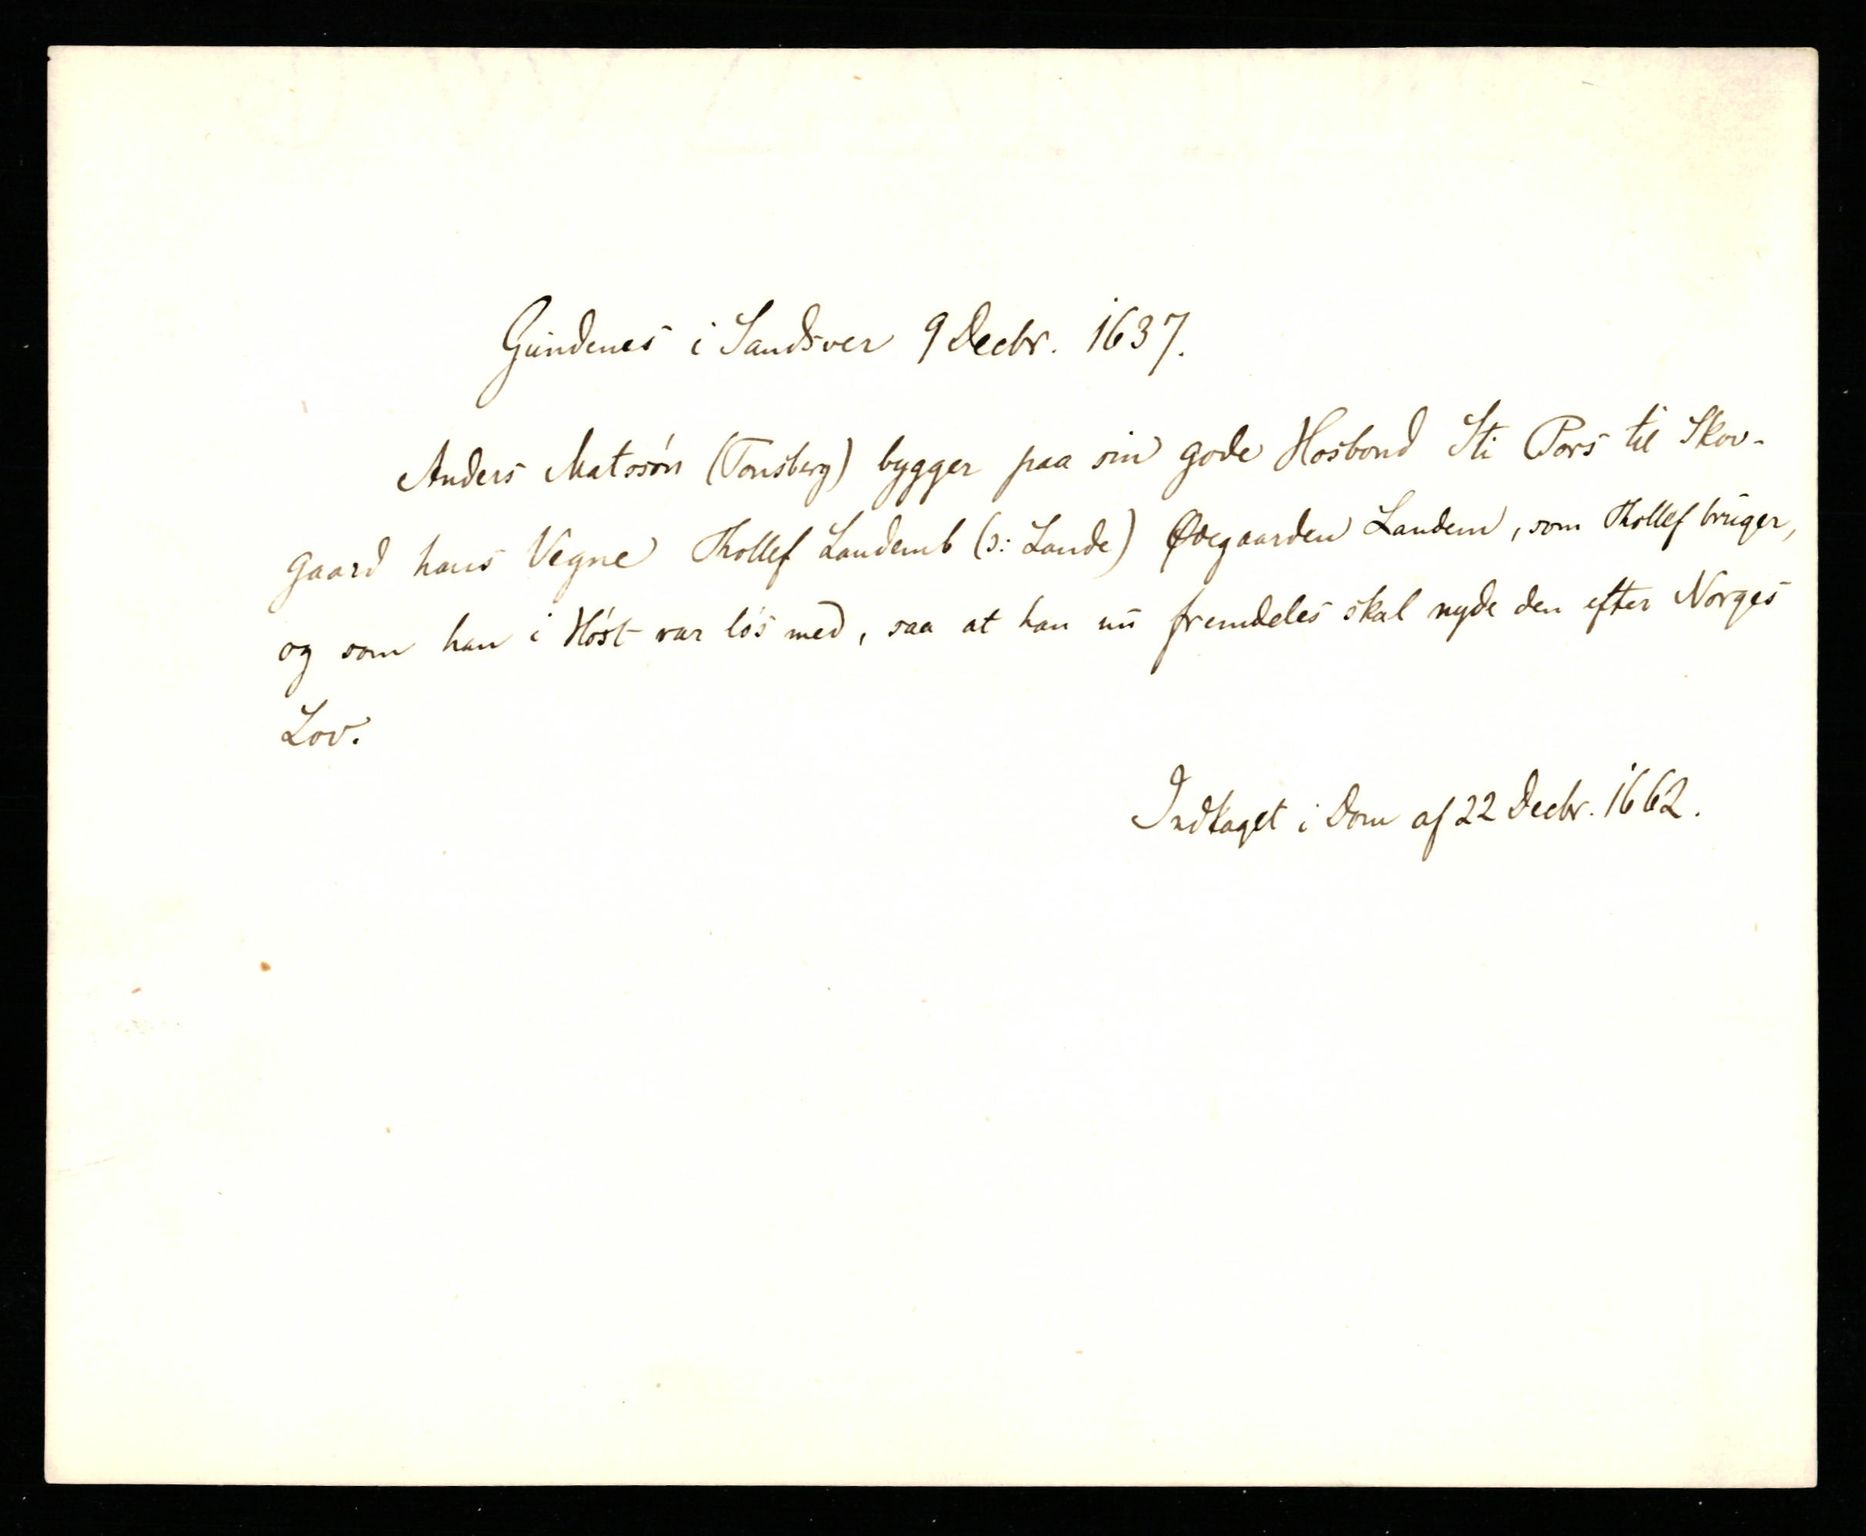 Gundenes i Sandsver 9 Decbr. 1637.
Anders Matssøn (Tonsberg) bygger paa sin gode Hosbond Sti Pors til Skov-
gaard hans Vegne Thollef Landemb (ɔ: Lande) Ødegaarden Landem, som Thollef bruger,
og som han i Høst var løs med, saa at han nu fremdeles skal nyde den efter Norges
Lov.
Indtaget i Dom af 22 Decbr. 1662.